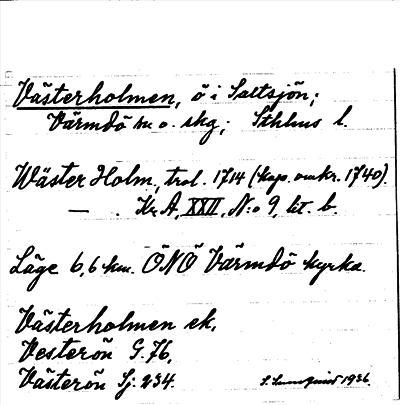 Västerholmen, ö i Saltsjön;
Värmdö sn o. skg; Sthlms l.
Wäster Holm, trol. 1714 (kop. omkr. 1740).
— . Kr. A, XXII, N:o 9, lit. b.
Läge 6,6 km. ÖNÖ Värmdö kyrka.
Västerholmen ek.
Vesterön G. 76,
Västerön Sj. 234.
1936.